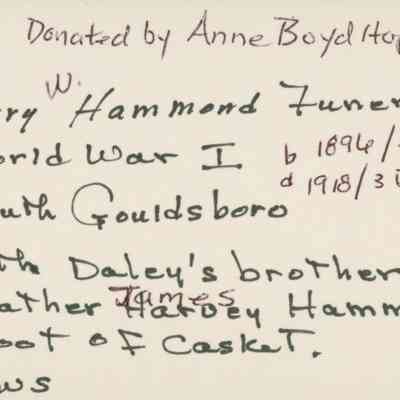 Donated by Anne Boyd Ho
ry W. Hammond Funer
orld War I b 1896/
uth Gouldsboro d 1918/3
th Daley's brother
ather James Harvey Hamm
oot of Casket.
ws